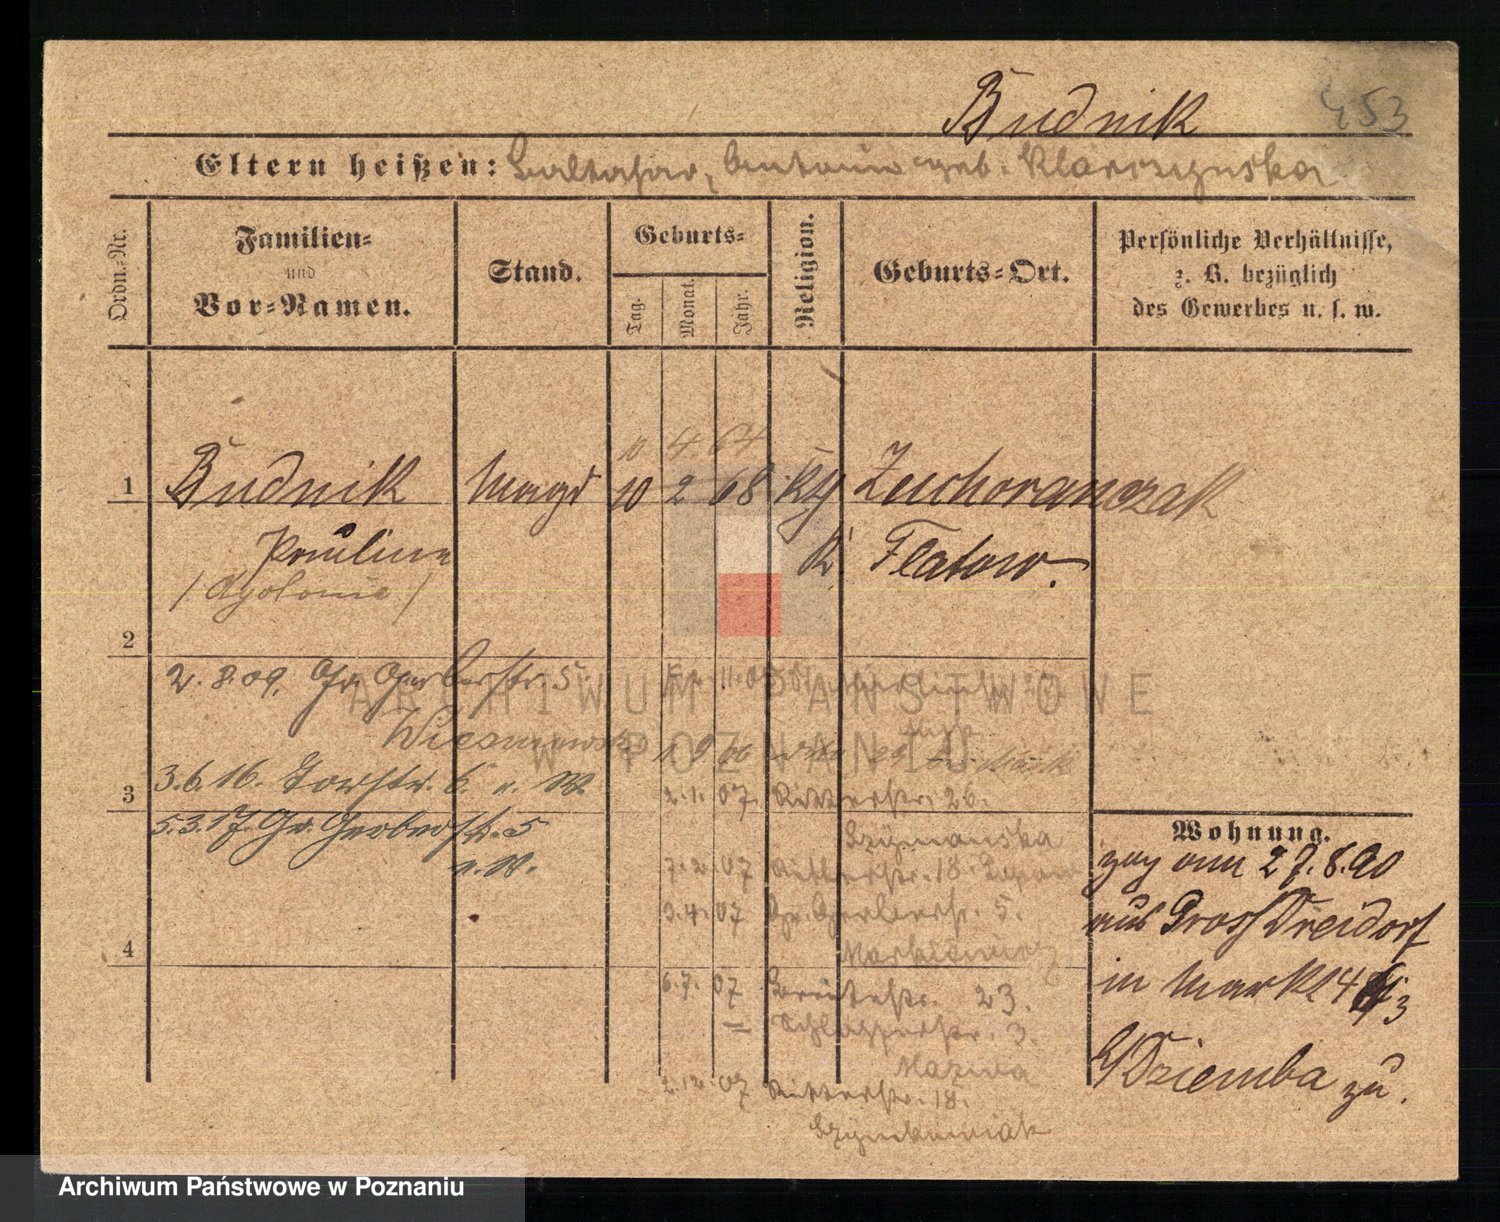 Budnik
453
Eltern heißen: Baltasar, Antonie geb. Klarczynska
Ordn.-Nr.
Familien-
und
Vor-Namen.
Stand.
Geburts-
Tag.
Monat.
Jahr.
Religion.
Geburts-Ort.
Persönliche Verhältnisse,
z. B. bezüglich
des Gewerbes u. s. w.
10 4 64
1 Budnik Magd 10 2 68 Kg Zuchoranczak
Paulina K. Flatow.
/Apolonie/
2
2. 8. 09. Gr. Gerberstr. 5
3. 6. 16. Torstr. 6. v. W.
3
2. 11. 07. Ritterstr. 26.
5. 3. 17. Gr. Gerberstr. 5
v. W.
Szymanska
7. 2. 07 Ritterstr. 18.
3. 4. 07 Gr. Gerberstr. 5.
Markiewicz
4
6. 7. 07 Breitestr. 23.
— Schlosserstr. 3.
Mazwa
2. 12. 07 Ritterstr. 18.
Szymkowiak
Wohnung.
zog am 27. 8. 90
aus Gross Dreidorf
in Markt 4
Dziemba zu.
ARCHIWUM PAŃSTWOWE
W POZNANIU
Archiwum Państwowe w Poznaniu